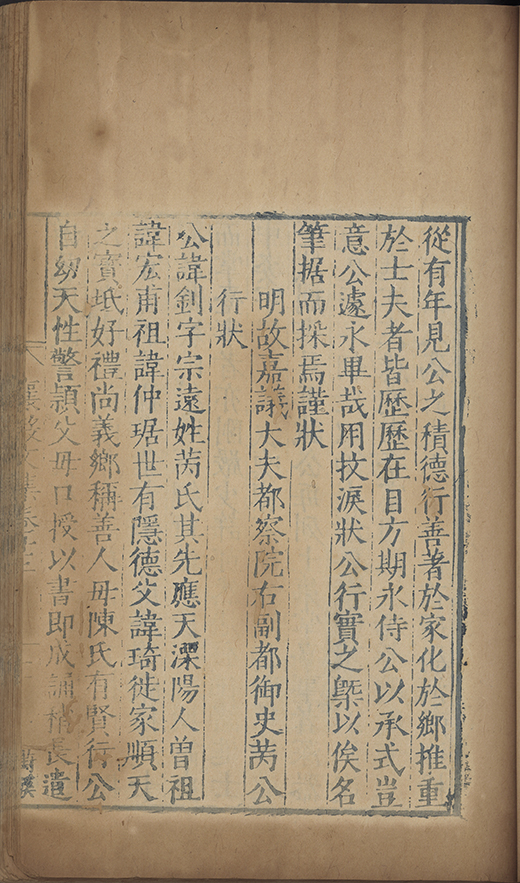 從有年見公之積德行善者於家化於鄉推重
於士夫者皆歷歷在目方期永侍公以承式豈
意公遽永畢哉用抆淚狀公行實之槩以俟名
筆据而採焉謹狀
明故嘉議大夫都察院右副都御史芮公
行狀
公諱釗字宗遠姓芮氏其先應天溧陽人曾祖
諱宏甫祖諱仲琚世有隱德父諱琦徙家順天
之寶坻好禮尚義鄉稱善人母陳氏有賢行公
自幼天性警頴父母口授以書即成誦稍長遣